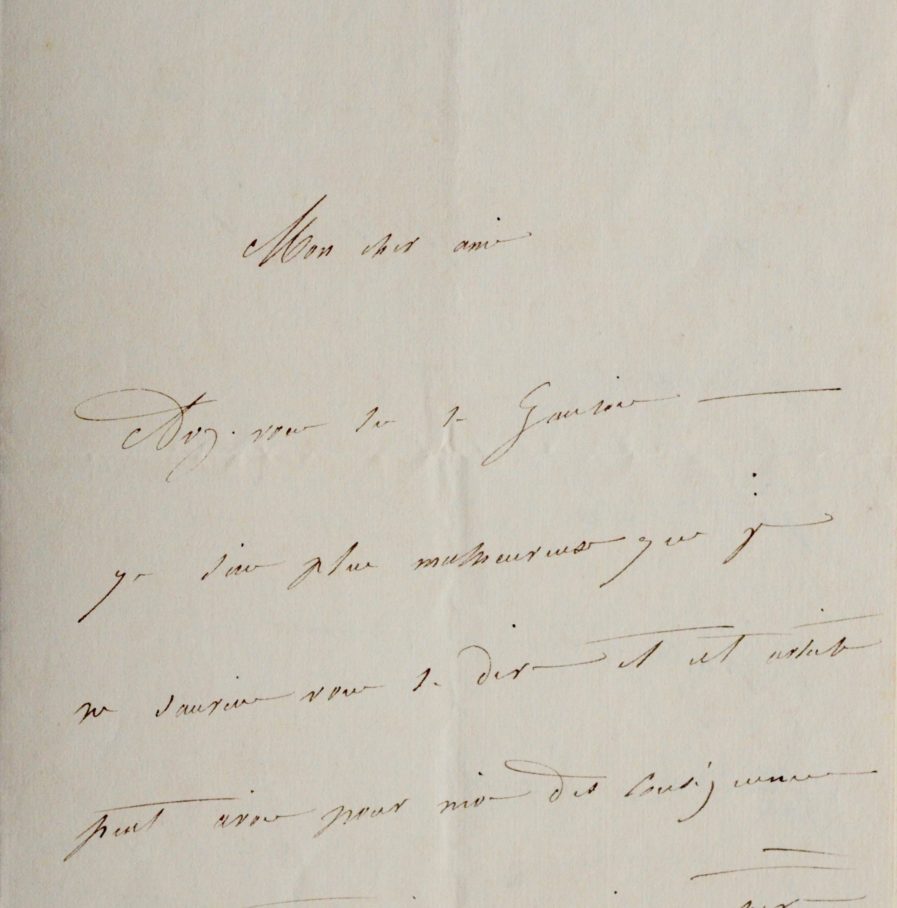 Mon cher ami
Avez vous lu le Gaulois —
je suis plus malheureuse que je
ne saurais vous le dire et cet article
peut avoir pour moi des conséquences